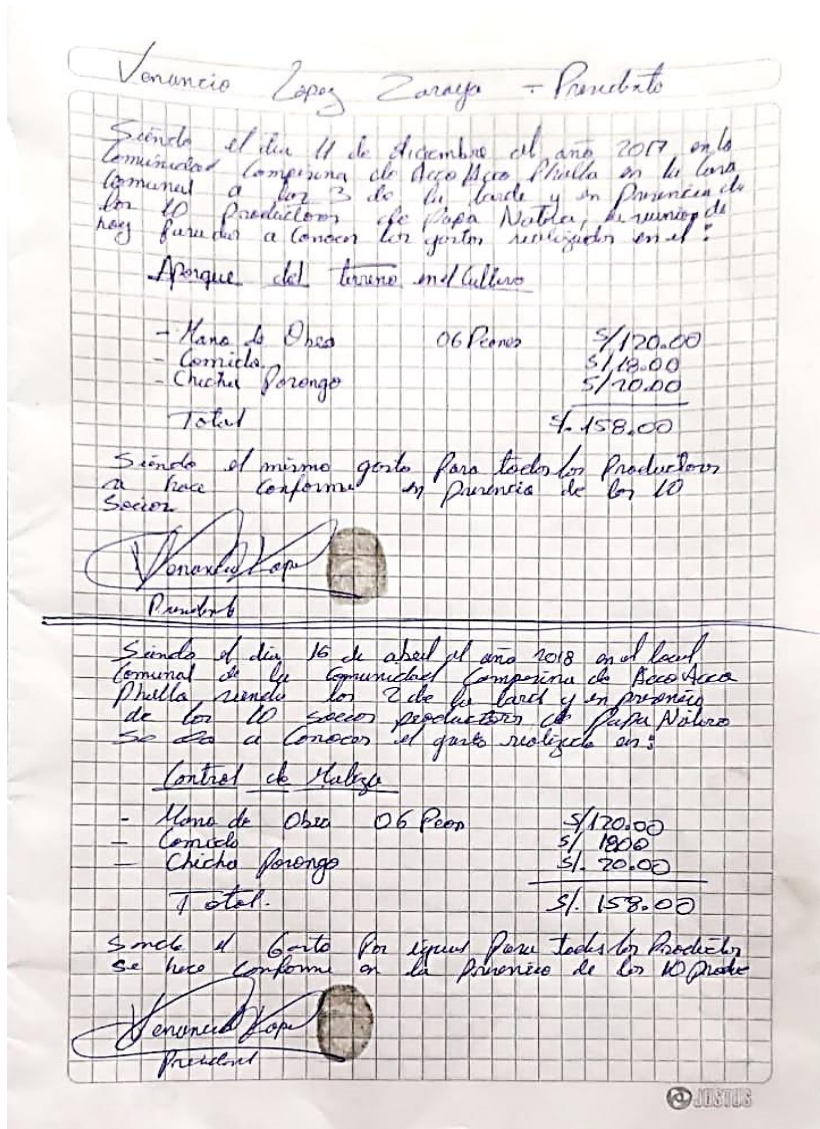 Venancio Lopez Zaraya - Presidente
Siendo el dia 11 de diciembre del año 2017 en la
Comunidad Campesina de Acco Acco Phalla en la Casa
Comunal a las 3 de la tarde y en Presencia de
los 10 Productores de Papa Nativa, se reunion de
hoy para dar a Conocer los gastos realizados en el :
Aporque del terreno en el Cultivo
- Mano de Obra 06 Peones S/120.00
- Comida S/18.00
- Chicha Porongo S/20.00
Total S/. 158.00
Siendo el mismo gasto Para todos los Productores
a hace conforme en presencia de los 10
Socios
Venancio Lopez
Presidente
Siendo el dia 16 de abril del año 2018 en el local
Comunal de la Comunidad Campesina de Acco Acco
Phalla siendo las 2 de la tard y en presencia
de los 10 socios productors de Papa Nativa
Se da a Conocer el gasto realizado en :
Control de Maleza
- Mano de Obra 06 Peon S/120.00
- Comida S/ 1800
- Chicha Porongo S/. 20.00
Total. S/. 158.00
Siendo el Gasto Por igual Para todos los Productor
Se hace Conforme en la Presencia de los 10 Produc
Venancio Lopez
President
JUSTUS